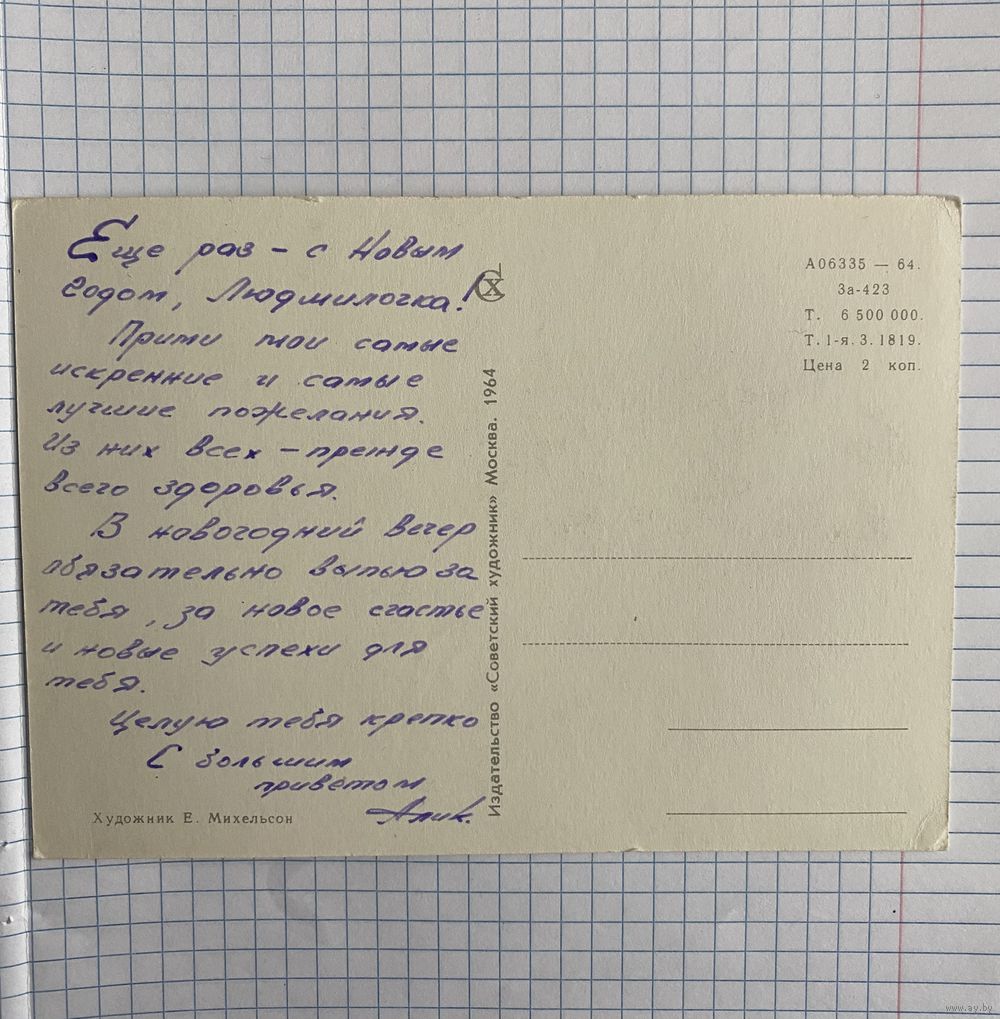 Еще раз – с Новым
годом, Людмилочка!
Прими мои самые
искренние и самые
лучшие пожелания.
Из них всех – прежде
всего здоровья.
В новогодний вечер
обязательно выпью за
тебя, за новое счастье
и новые успехи для
тебя.
Целую тебя крепко
С большим
приветом
Алик.
Художник Е. Михельсон
Издательство «Советский художник» Москва. 1964
А06335 — 64.
За-423
Т. 6 500 000.
Т. 1-я. 3. 1819.
Цена 2 коп.
www.ay.by